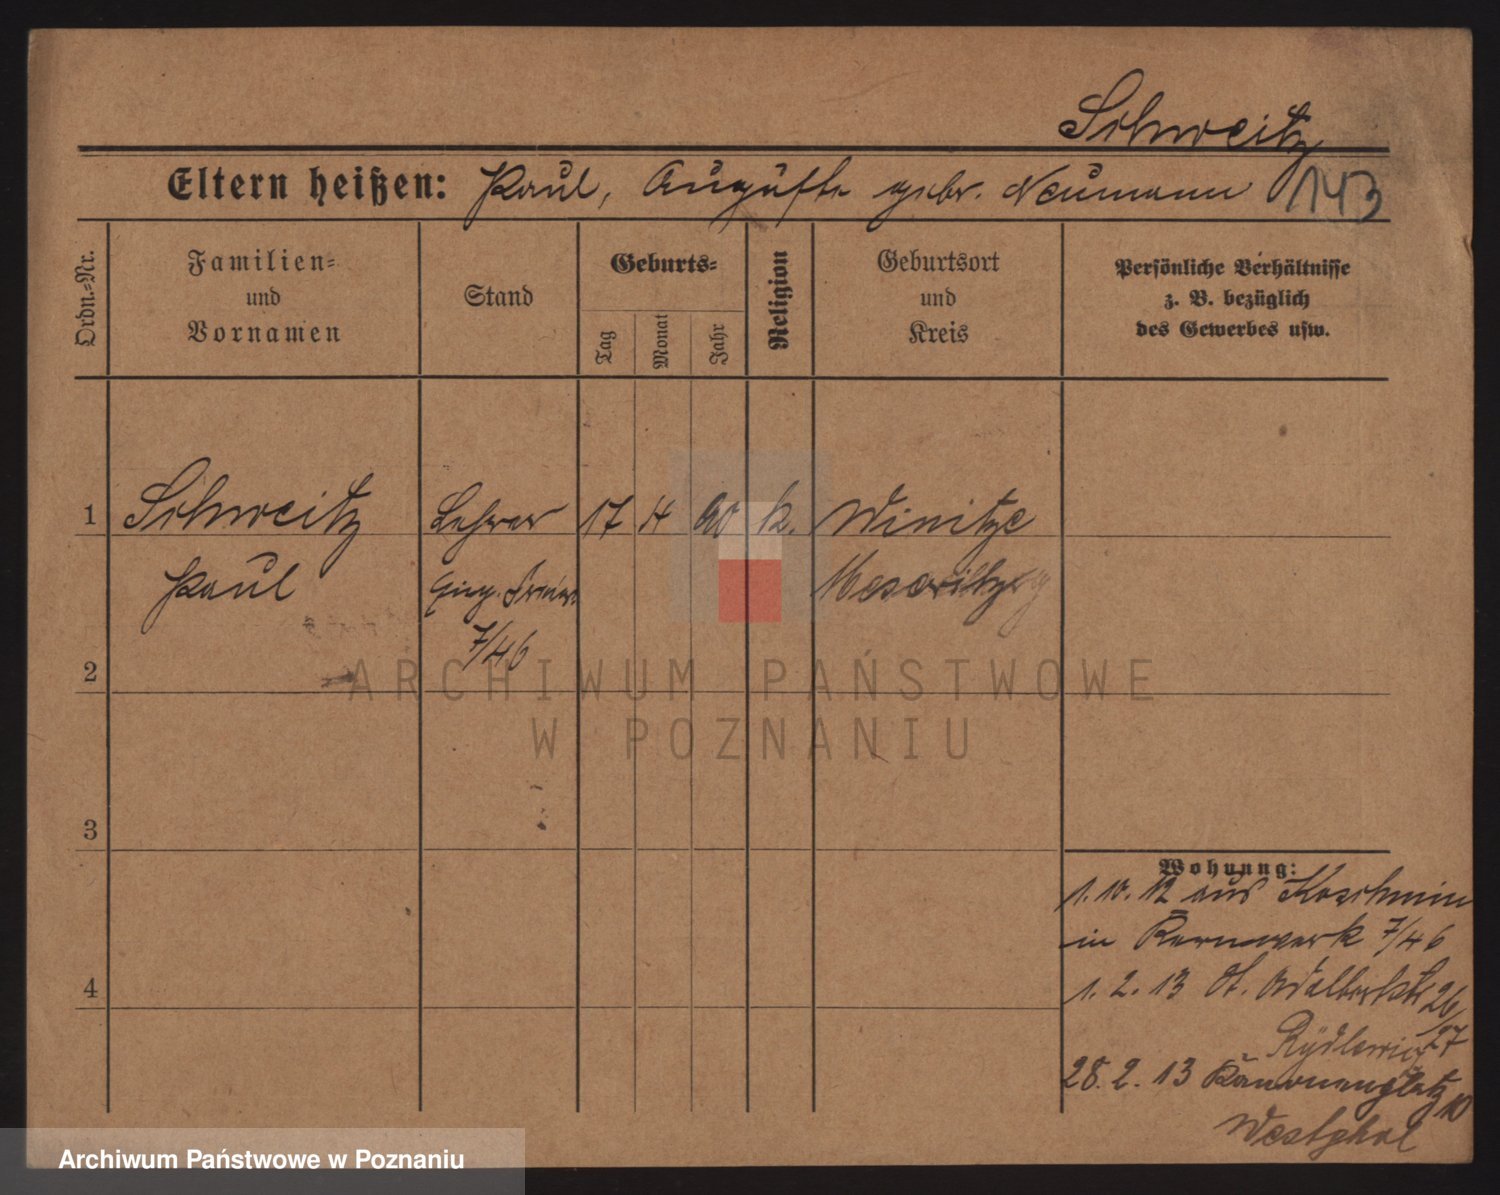 Schweitz
Eltern heißen: Paul, Auguste gebr. Neumann 143
Ordn.=Nr.
Familien=
und
Vornamen
Stand
Geburts=
Tag
Monat
Jahr
Religion
Geburtsort
und
Kreis
Persönliche Verhältnisse
z. B. bezüglich
des Gewerbes usw.
1 Schweitz Lehrer 17 4 90 k. Winitze
Paul Meseritz
7/46
2
ARCHIWUM PAŃSTWOWE
W POZNANIU
3
Wohnung:
1. 10. 12 aus Koschmin
in Kernwerk 7/46
4
1. 2. 13 St. Adalbertstr 26/27
Rydlewicz
28. 2. 13 Kanonenplatz 10
Westphal
Archiwum Państwowe w Poznaniu